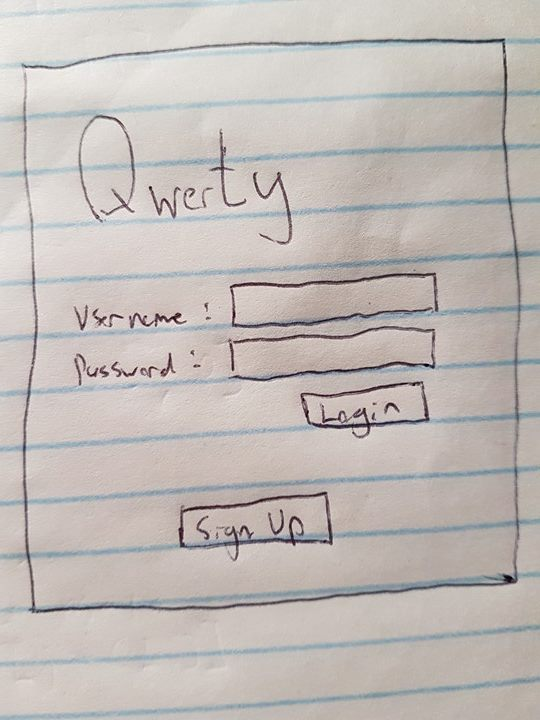 Qwerty
Username :
Password :
Login
Sign Up